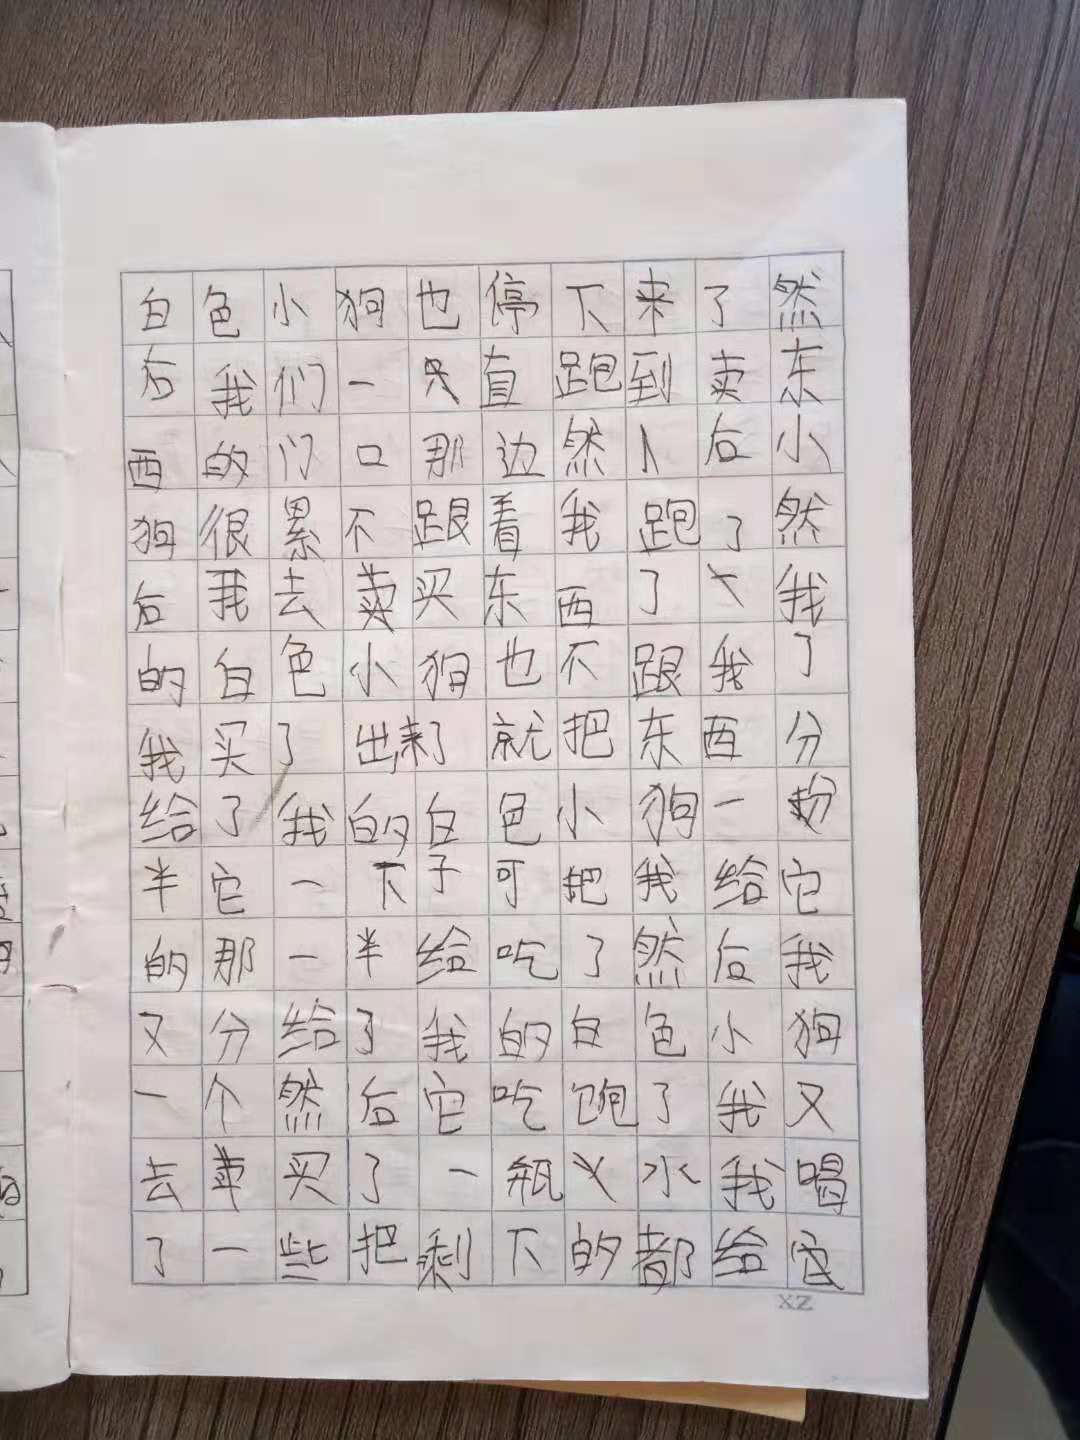 白色小狗也停下来了然
后我们一直跑到卖东
西的门口那边然后小
狗很累不跟着我跑了然
后我去买东西了我
的白色小狗也不跟我了
我买了出来了就把东西分
给了我的白色小狗一
半它一下子可把我给它
的那一半给吃了然后我
又分给了我的白色小狗
一个然后它吃饱了我又
去买了一瓶水我喝
了一些把剩下的都给它
XZ